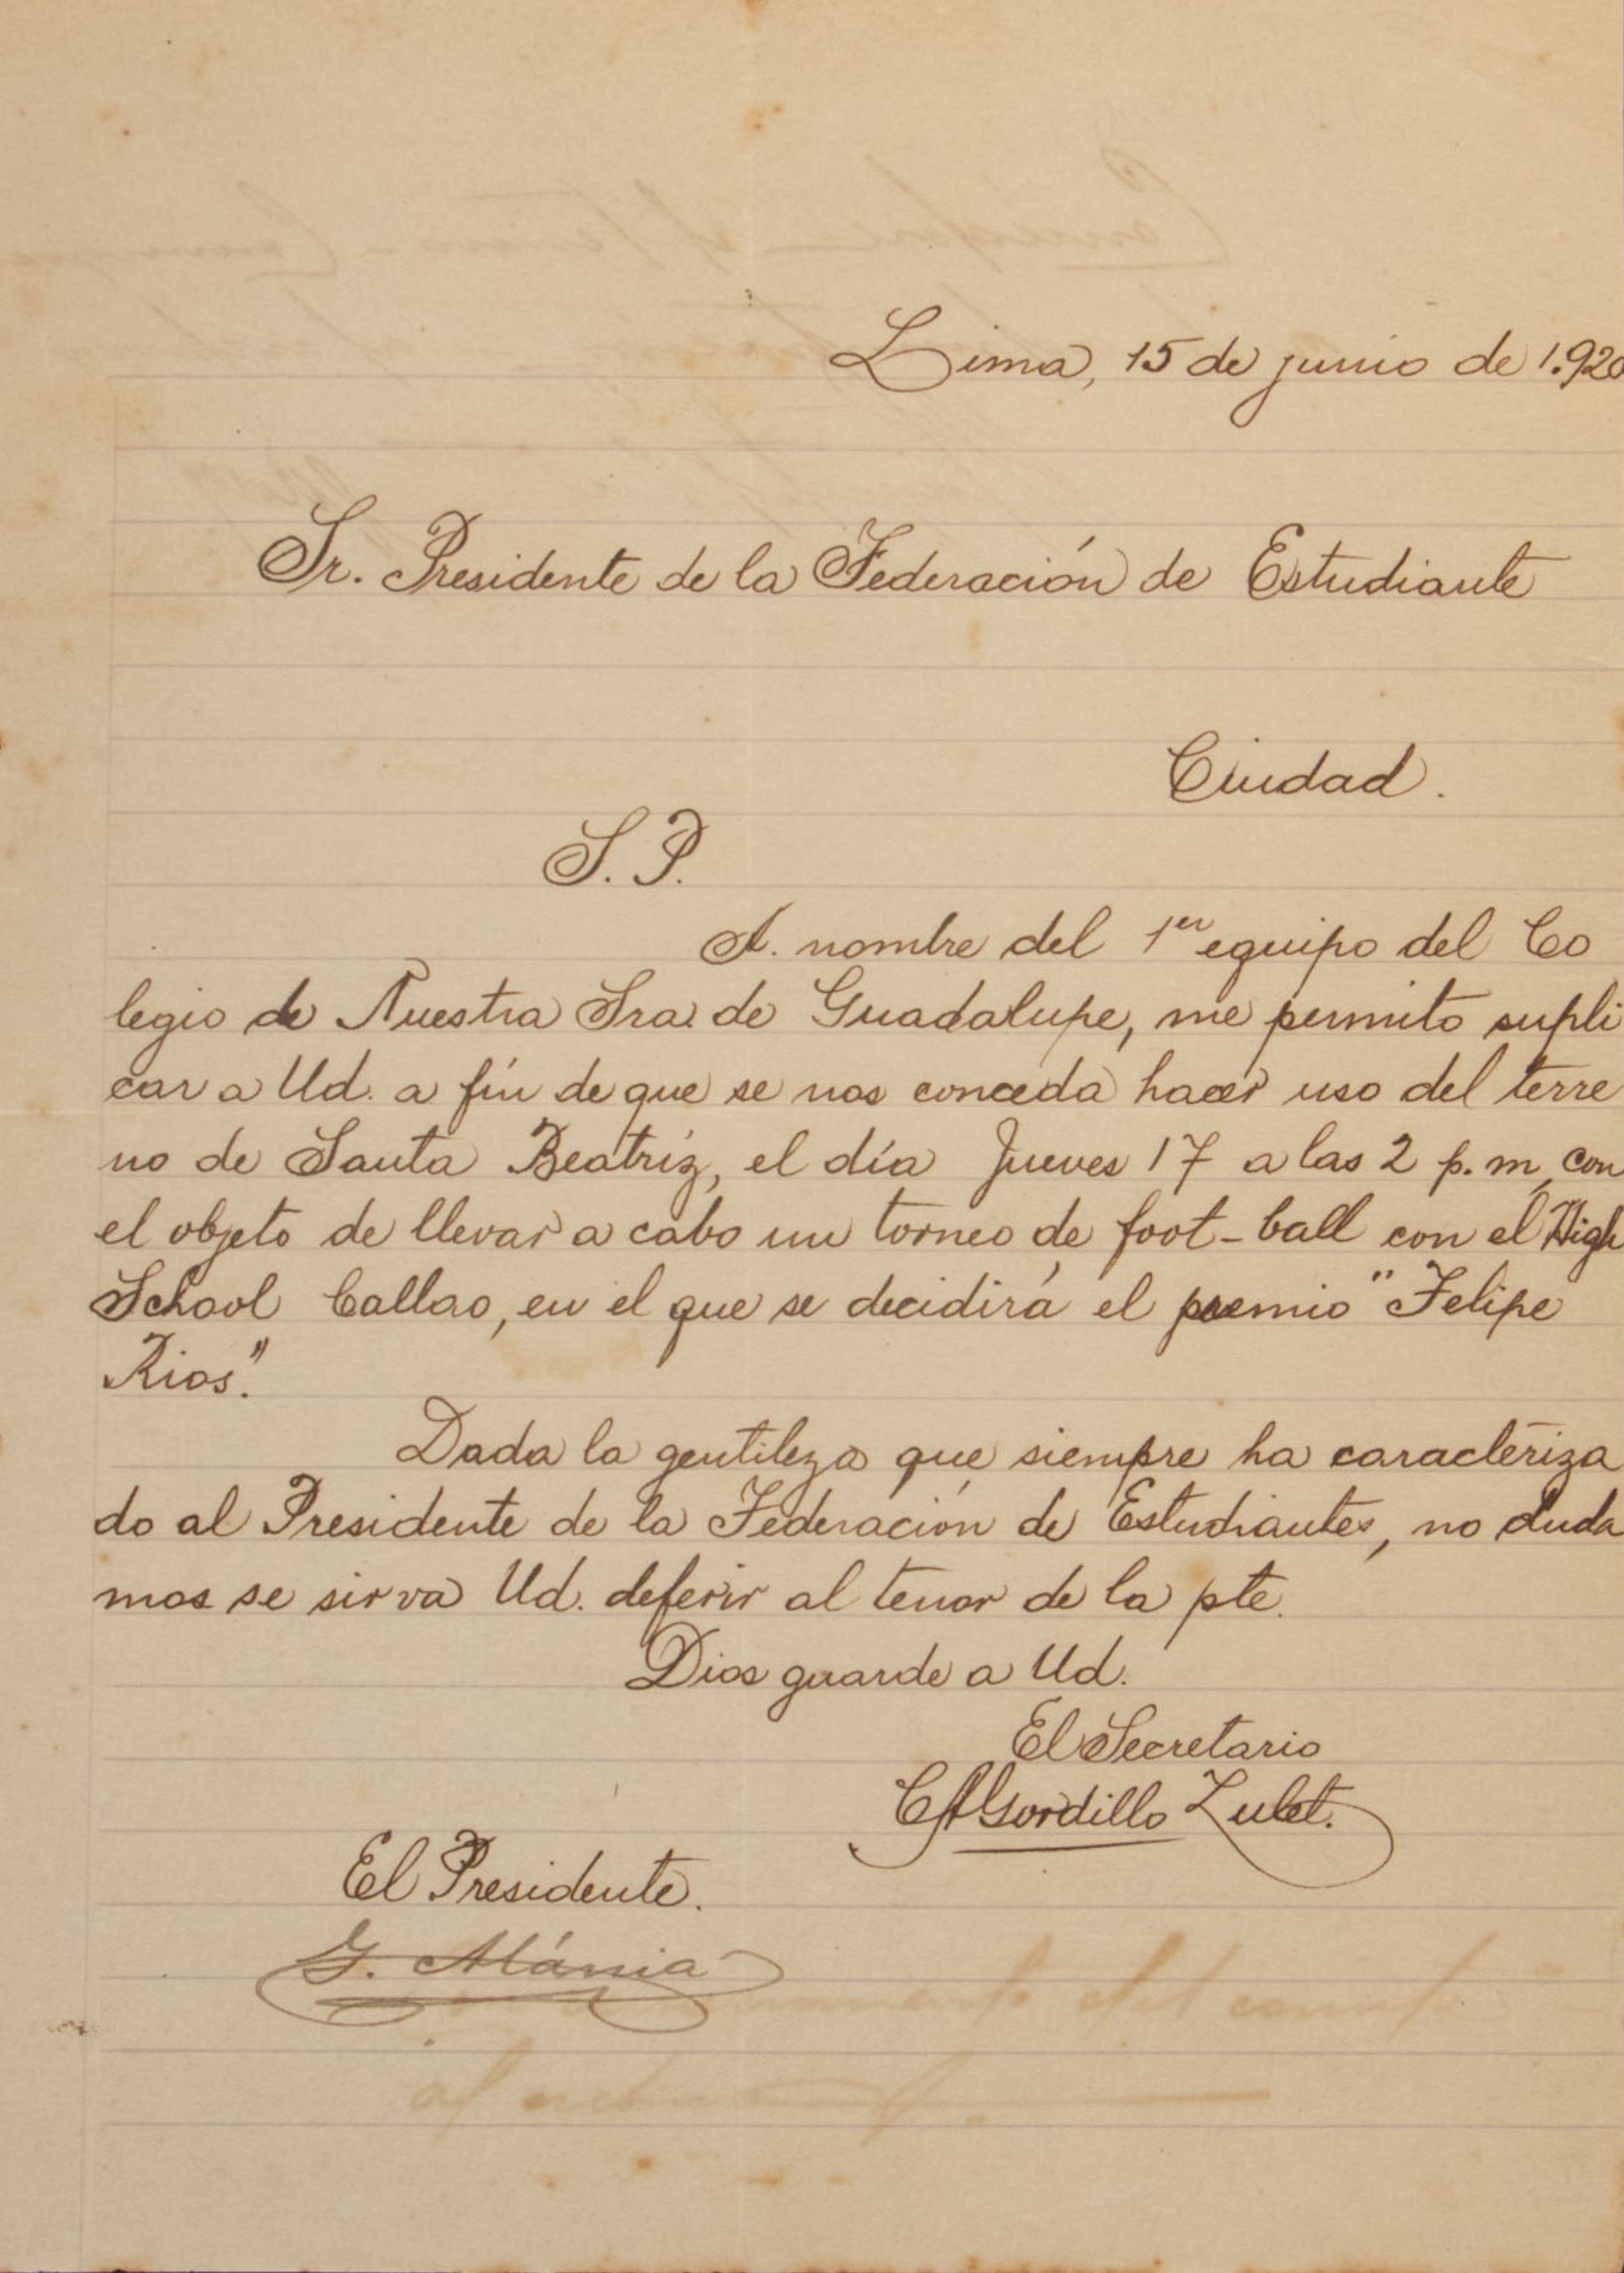 Lima, 15 de junio de 1.920
Sr. Presidente de la Federación de Estudiante
Ciudad.
S. P.
A. nombre del 1er equipo del Co
legio de Nuestra Sra. de Guadalupe, me permito supli
car a Ud. a fín de que se nos conceda hacer uso del terre
no de Santa Beatríz, el día Jueves 17 a las 2 p.m, con
el objeto de llevar a cabo un torneo de foot-ball con el High
School Callao, en el que se decidirá el premio "Felipe
Rios".
Dada la gentileza que siempre ha caracteriza
do al Presidente de la Federación de Estudiantes, no duda
mos se sirva Ud. deferir al tenor de la pte.
Dios guarde a Ud.
El Secretario
CAGordillo Zulet.
El Presidente.
G.